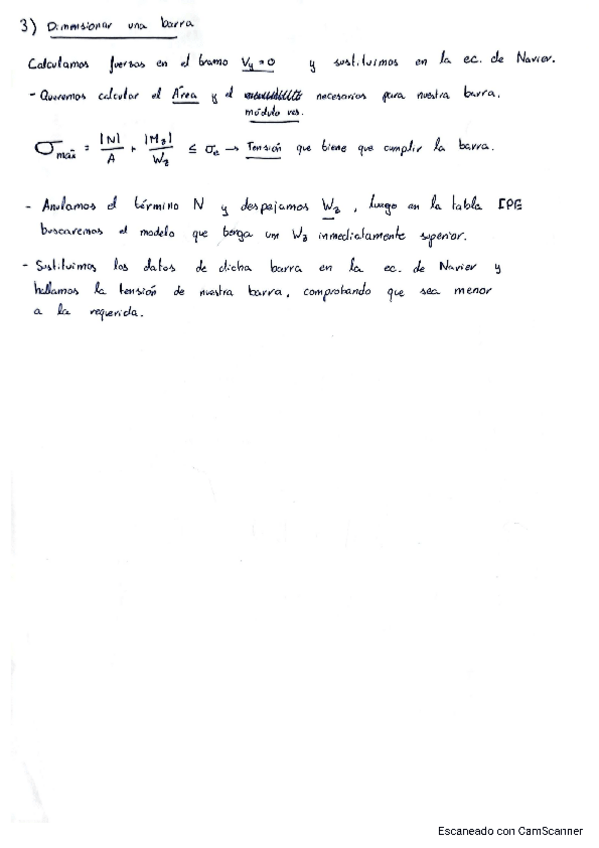 3) Dimensionar una barra
Calculamos fuerzas en el tramo Vy = 0 y sustituimos en la ec. de Navier.
- Queremos calcular el Área y el necesarios para nuestra barra.
módulo res.
σmax = |N|/A + |Mz|/Wz ≤ σe → Tensión que biene que cumplir la barra.
- Anulamos el término N y despejamos Wz, luego en la tabla IPE
buscaremos el modelo que tenga un Wz inmediatamente superior.
- Sustituimos los datos de dicha barra en la ec. de Navier y
hallamos la tensión de nuestra barra, comprobando que sea menor
a la requerida.
Escaneado con CamScanner